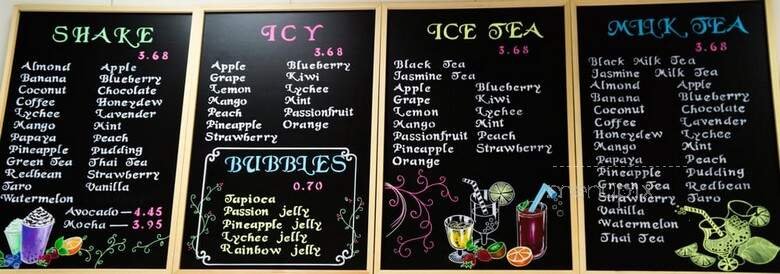 SHAKE
3.68
Almond Apple
Banana Blueberry
Coconut Chocolate
Coffee Honeydew
Lychee Lavender
Mango Mint
Papaya Peach
Pineapple Pudding
Green Tea Thai Tea
Redbean Strawberry
Taro Vanilla
Watermelon
Avocado — 4.45
Mocha — 3.95
ICY
3.68
Apple Blueberry
Grape Kiwi
Lemon Lychee
Mango Mint
Peach Passionfruit
Pineapple Orange
Strawberry
BUBBLES
0.70
Tapioca
Passion jelly
Pineapple jelly
Lychee jelly
Rainbow jelly
ICE TEA
3.68
Black Tea
Jasmine Tea
Apple Blueberry
Grape Kiwi
Lemon Lychee
Mango Mint
Passionfruit Peach
Pineapple Strawberry
Orange
MILK TEA
3.68
Black Milk Tea
Jasmine Milk Tea
Almond Apple
Banana Blueberry
Coconut Chocolate
Coffee Lavender
Honeydew Lychee
Mango Mint
Papaya Peach
Pineapple Pudding
Tea Redbean
Strawberry Taro
Vanilla
Watermelon
Thai Tea